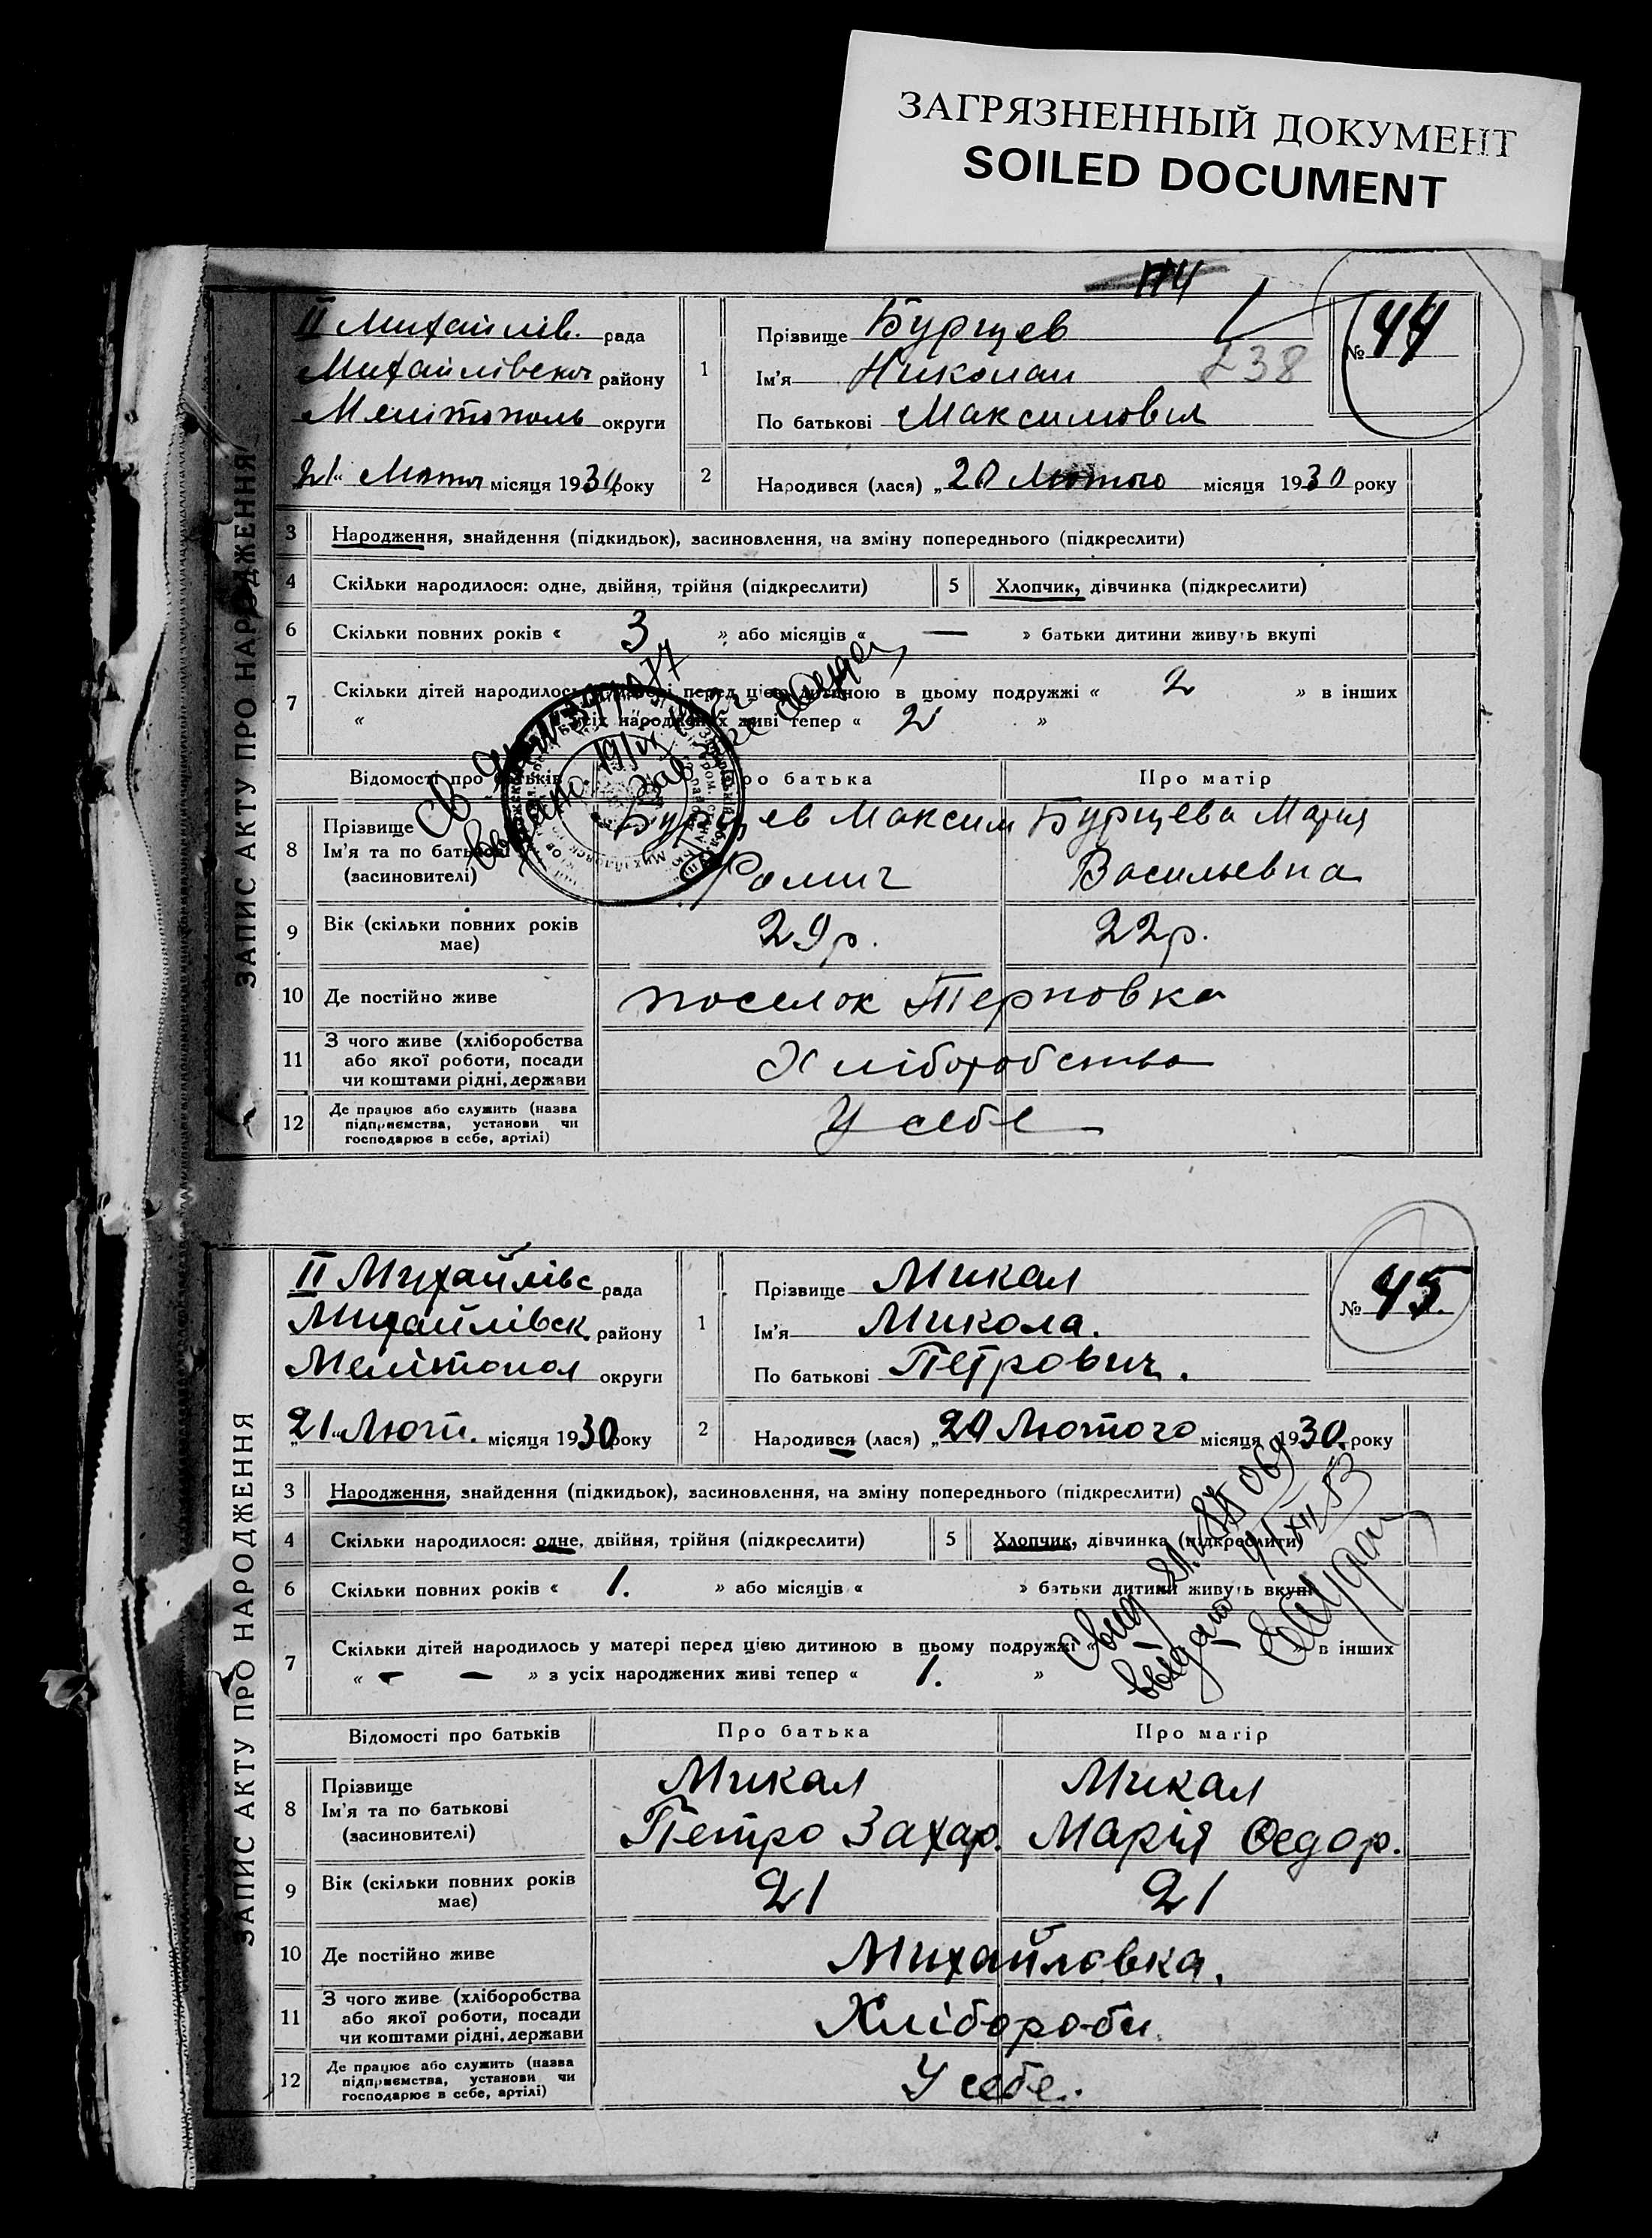 ЗАГРЯЗНЕННЫЙ ДОКУМЕНТ
SOILED DOCUMENT
ЗАПИС АКТУ ПРО НАРОДЖЕННЯ
II Михайлів. рада
Михайлівськ району
Мелітополь округи
21 Лютого місяця 1930 року
1
Прізвище Бурцев
Ім'я Николай 238
По батькові Максимович
№ 44
2
Народився (лася) „20 Лютого місяця 1930 року
3 Народження, знайдення (підкидьок), засиновлення, на зміну попереднього (підкреслити)
4 Скільки народилося: одне, двійня, трійня (підкреслити) 5 Хлопчик, дівчинка (підкреслити)
6 Скільки повних років « 3 » або місяців « — » батьки дитини живуть вкупі
7 Скільки дітей народилось у матері перед цією дитиною в цьому подружжі « 2 » в інших
« усіх народжених живі тепер « 2 »
Відомості про батьків Про батька Про матір
8 Прізвище Ім'я та по батькові (засновителі)
Бурцев Максим Бурцева Мария
Васильевна
9 Вік (скільки повних років має) 29 р. 22 р.
10 Де постійно живе поселок Терновка
11 З чого живе (хліборобства або якої роботи, посади чи коштами рідні, держави Хліборобство
12 Де працює або служить (назва підприємства, установи чи господарює в себе, артілі) У себе
ЗАПИС АКТУ ПРО НАРОДЖЕННЯ
II Михайлівс рада
Михайлівск. району
Мелітопол округи
„21" Лют. місяця 1930 року
1
Прізвище Микал
Ім'я Микола.
По батькові Петрович.
№ 45.
2
Народився (лася) „20 Лютого місяця 1930. року
3 Народження, знайдення (підкидьок), засиновлення, на зміну попереднього (підкреслити)
4 Скільки народилося: одне, двійня, трійня (підкреслити) 5 Хлопчик, дівчинка (підкреслити)
6 Скільки повних років « 1. » або місяців « » батьки дитини живуть вкупі
7 Скільки дітей народилось у матері перед цією дитиною в цьому подружжі « — » в інших
« — — » з усіх народжених живі тепер « 1. »
Відомості про батьків Про батька Про матір
8 Прізвище Ім'я та по батькові (засиновителі)
Микал Микал
Петро Захар. Марія Федор.
9 Вік (скільки повних років має) 21 21
10 Де постійно живе Михайловка.
11 З чого живе (хліборобства або якої роботи, посади чи коштами рідні, держави Хлібороби
12 Де працює або служить (назва підприємства, установи чи господарює в себе, артілі) У себе.